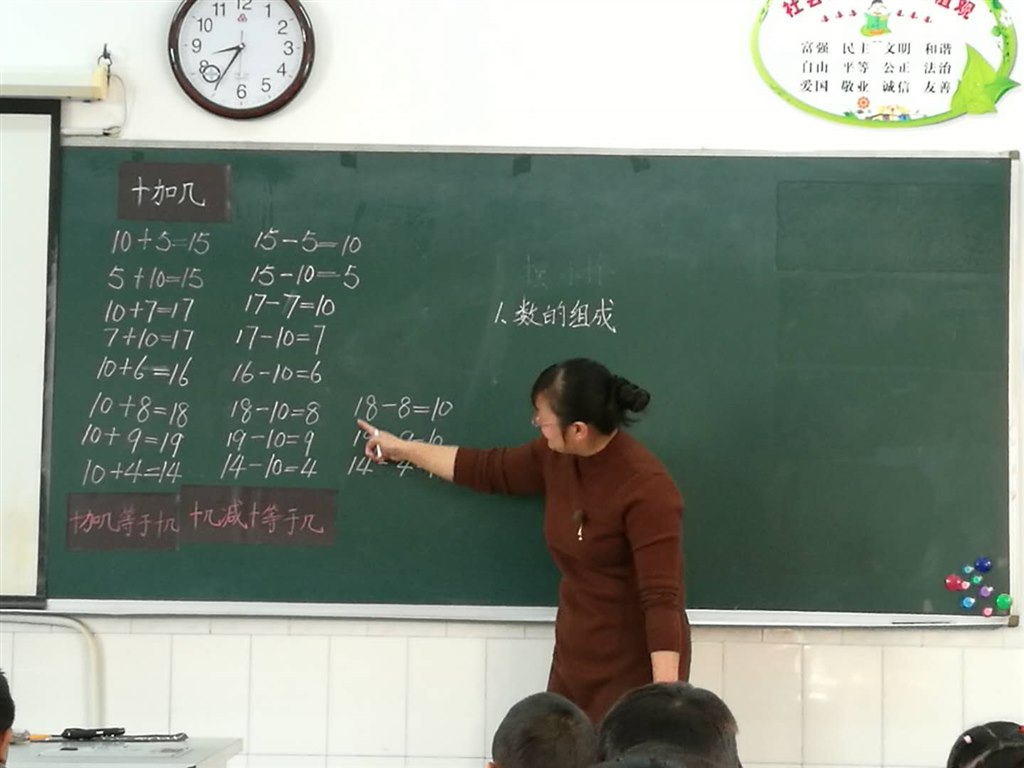 12
11 1
10 2
9 3
8 4
7 5
6
富强 民主 文明 和谐
自由 平等 公正 法治
爱国 敬业 诚信 友善
十加几
10+5=15 15-5=10
5+10=15 15-10=5
10+7=17 17-7=10
7+10=17 17-10=7
10+6=16 16-10=6
10+8=18 18-10=8 18-8=10
10+9=19 19-10=9
10+4=14 14-10=4 14-4
十加几等于十几 十几减十等于几
1、数的组成